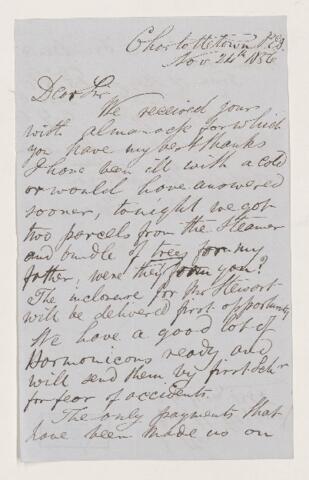 Charlottetown P.E.I.
Nov 24th 1856
Dear Sir
We received yours
with almanack for which
you have my best thanks
I have been ill with a cold
or would have answered
sooner, tonight we got
two parcels from the Steamer
and bundle of trees for my
father, were they from you?
The inclosure for Mr Stewart
will be delivered first opportunity
We have a good lot of
Harmonicons ready and
will send them by first Schr
for fear of accidents.
The only payments that
have been made us on